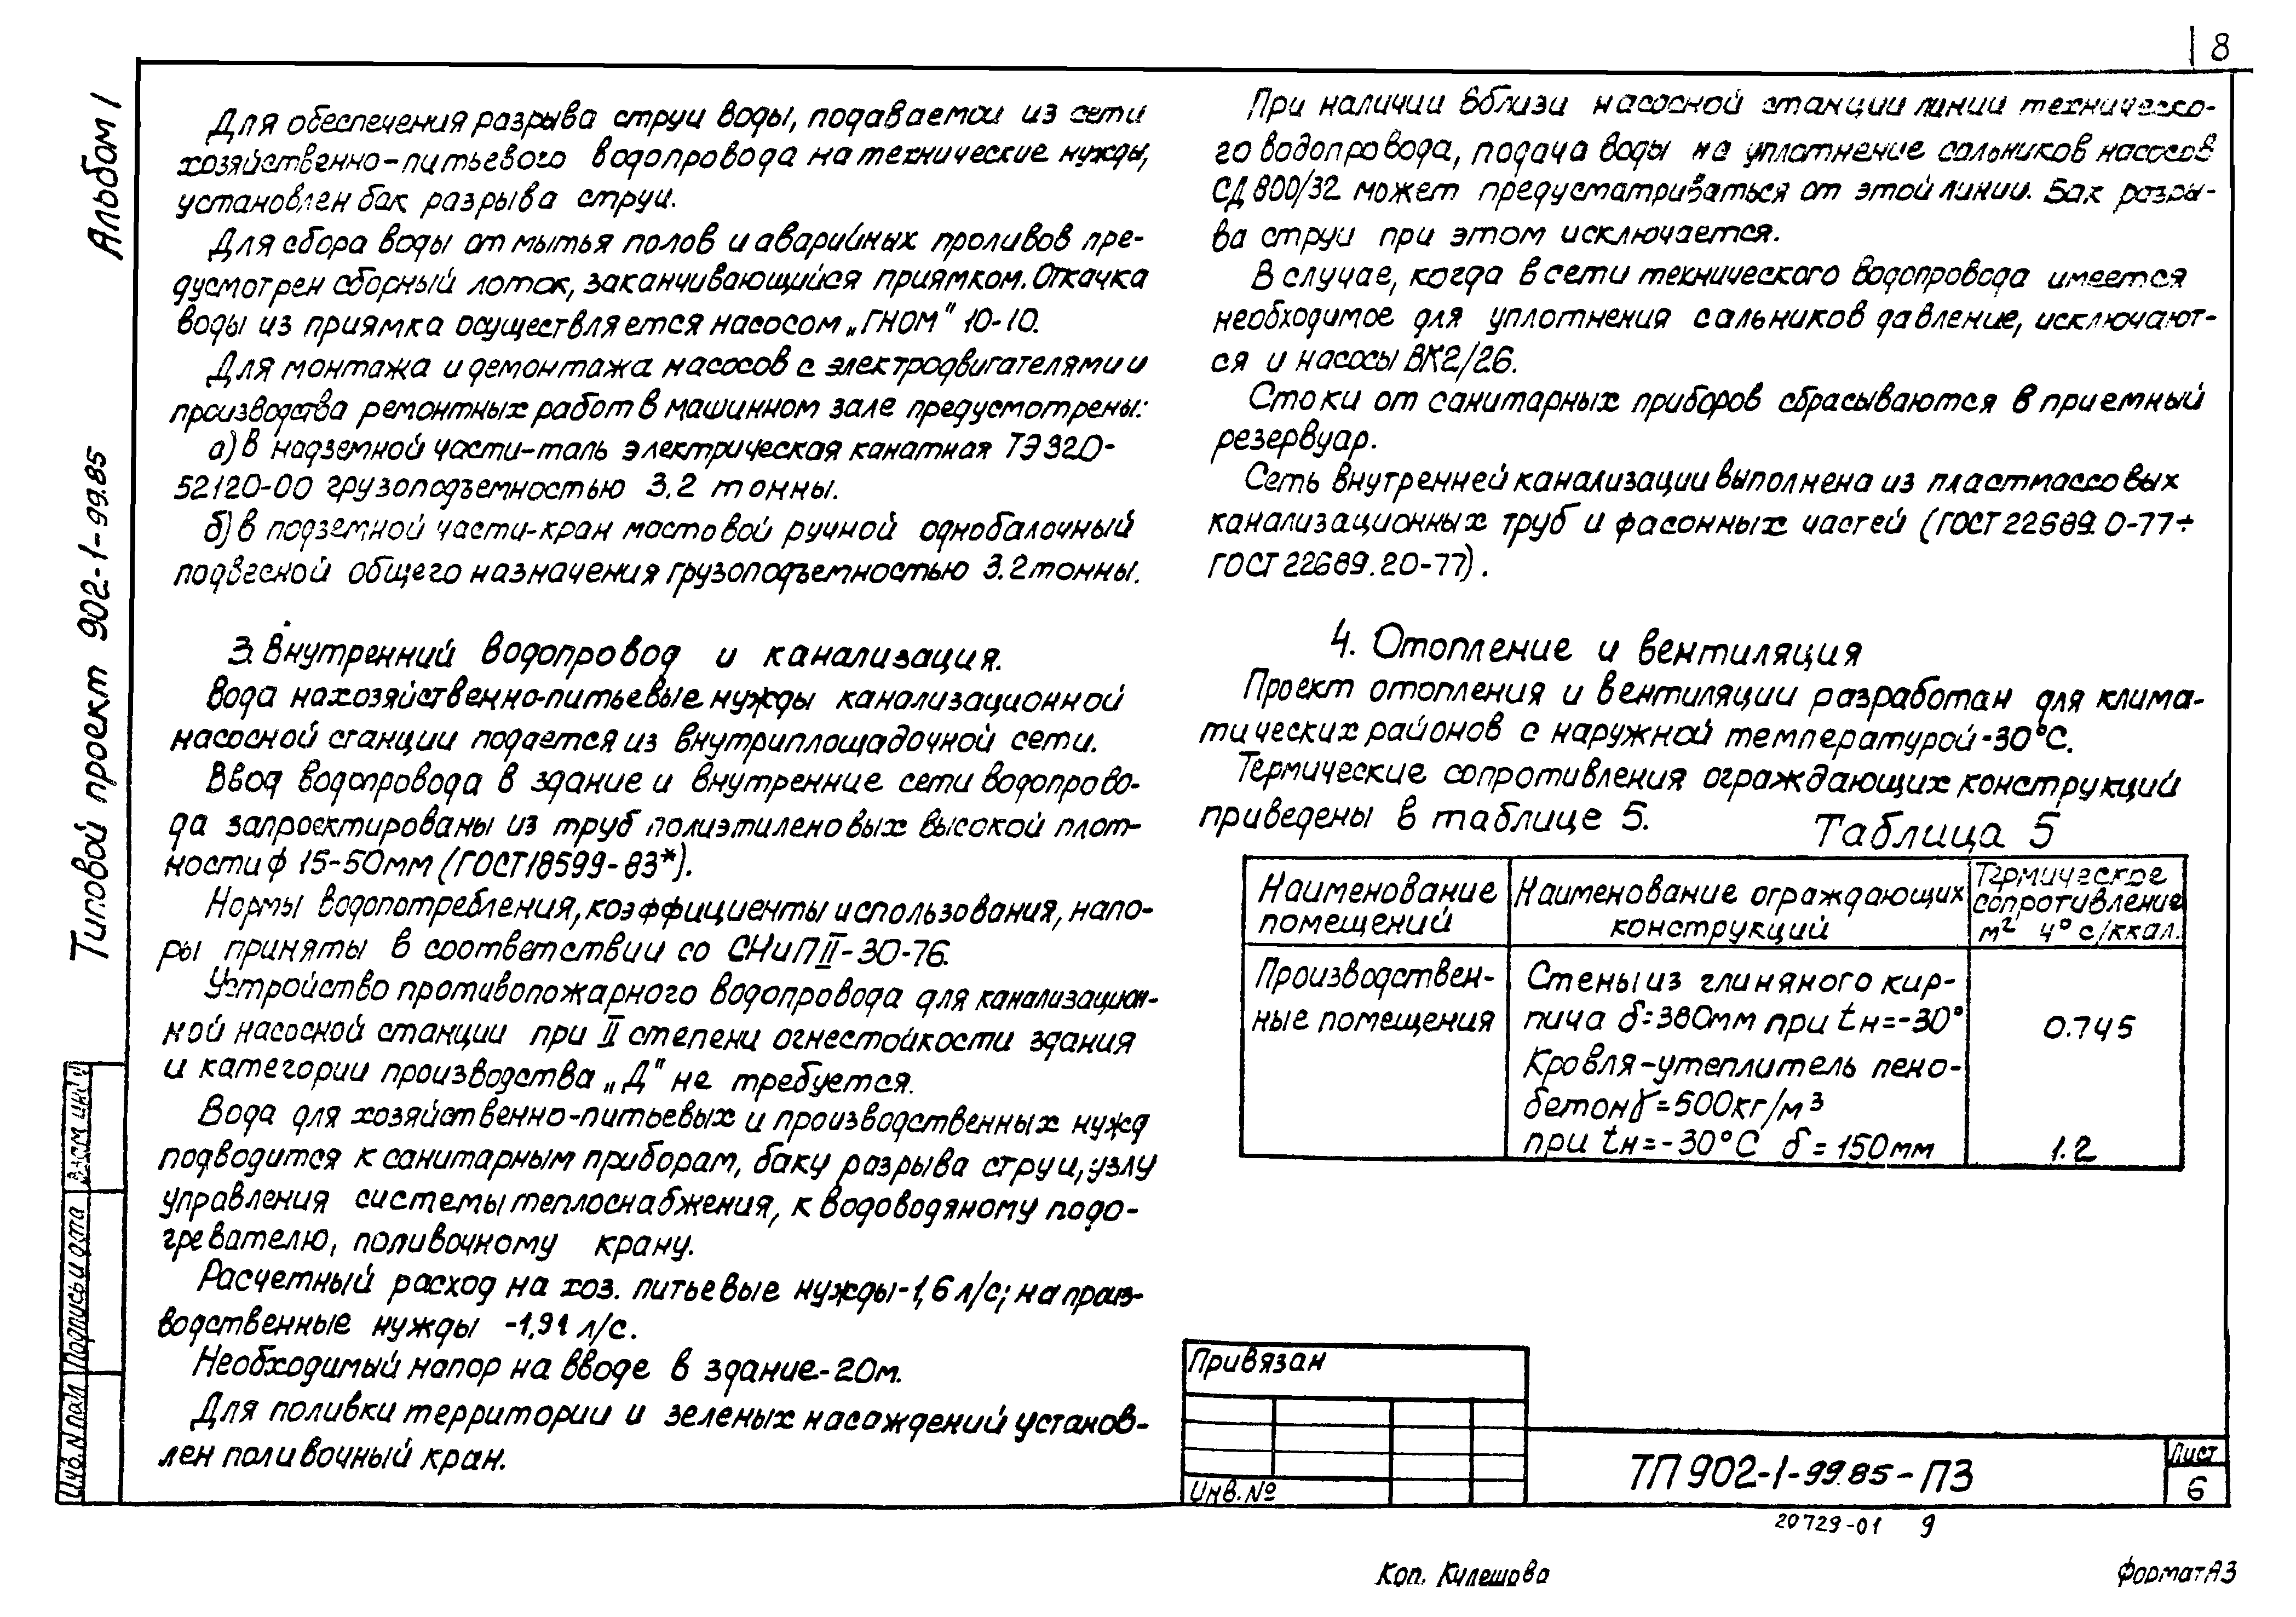 8
Альбом 1
Типовой проект 902-1-99.85
Для обеспечения разрыва струи воды, подаваемой из сети
хозяйственно-питьевого водопровода на технические нужды,
установлен бак разрыва струи.
Для сбора воды от мытья полов и аварийных проливов пре-
дусмотрен сборный лоток, заканчивающийся приямком. Откачка
воды из приямка осуществляется насосом „ГНОМ" 10-10.
Для монтажа и демонтажа насосов с электродвигателями и
производства ремонтных работ в машинном зале предусмотрены:
а) в надземной части-таль электрическая канатная ТЭ320-
52120-00 грузоподъемностью 3.2 тонны.
б) в подземной части-кран мостовой ручной однобалочный
подвесной общего назначения грузоподъемностью 3.2 тонны.
3. Внутренний водопровод и канализация.
Вода на хозяйственно-питьевые нужды канализационной
насосной станции подается из внутриплощадочной сети.
Ввод водопровода в здание и внутренние сети водопрово-
да запроектированы из труб полиэтиленовых высокой плот-
ности ф 15-50мм (ГОСТ18599-83*).
Нормы водопотребления, коэффициенты использования, напо-
ры приняты в соответствии со СНиП II-30-76.
Устройство противопожарного водопровода для канализацион-
ной насосной станции при II степени огнестойкости здания
и категории производства „Д" не требуется.
Вода для хозяйственно-питьевых и производственных нужд
подводится к санитарным приборам, баку разрыва струи, узлу
управления системы теплоснабжения, к водоводяному подо-
гревателю, поливочному крану.
Расчетный расход на хоз. питьевые нужды-1,6 л/с; на произ-
водственные нужды -1,91 л/с.
Необходимый напор на вводе в здание-20м.
Для поливки территории и зеленых насаждений установ-
лен поливочный кран.
При наличии вблизи насосной станции линии техническо-
го водопровода, подача воды на уплотнение сальников насосов
СД 800/32 может предусматриваться от этой линии. Бак разры-
ва струи при этом исключается.
В случае, когда в сети технического водопровода имеется
необходимое для уплотнения сальников давление, исключают-
ся и насосы ВК2/26.
Стоки от санитарных приборов сбрасываются в приемный
резервуар.
Сеть внутренней канализации выполнена из пластмассовых
канализационных труб и фасонных частей (ГОСТ 22689.0-77÷
ГОСТ 22689.20-77).
4. Отопление и вентиляция
Проект отопления и вентиляции разработан для клима-
тических районов с наружной температурой-30°С.
Термические сопротивления ограждающих конструкций
приведены в таблице 5.
Таблица 5
Наименование помещений
Наименование ограждающих конструкций
Термическое сопротивление м² ч°с/ккал.
Производствен-
ные помещения
Стены из глиняного кир-
пича δ=380мм при tн=-30° 0.745
Кровля-утеплитель пено-
бетон γ=500кг/м³
при tн=-30°С δ=150мм 1.2
Привязан
Инв.№
ТП 902-1-99.85-ПЗ
Лист
6
20729-01 9
Коп. Кулешова
Формат А3
Взам инв
Подпись и дата
Инв. N подл